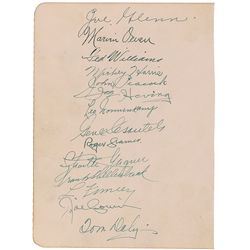 Joe Glenn
Marvin Owen
Ted Williams
Mickey Harris
Johnny Peacock
Joe Heving
Leo Nonnenkamp
Gene Desautels
Roger Cramer
Charlie Wagner
Joe Cronin
Tom Daly